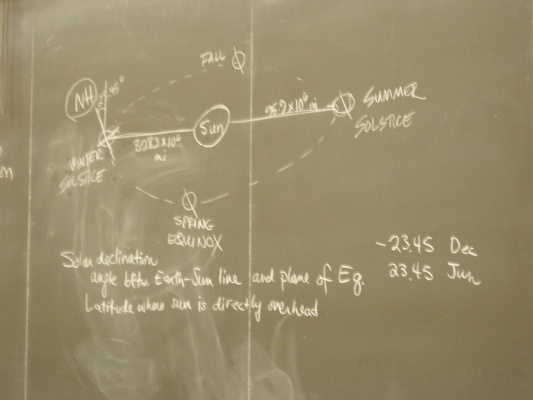 FALL
NH
SUMMER
SOLSTICE
Sun
WINTER
SOLSTICE
mi
mi
SPRING
EQUINOX
Solar declination
angle btw Earth-Sun line and plane of Eq.
Latitude where sun is directly overhead
-23.45 Dec
23.45 Jun